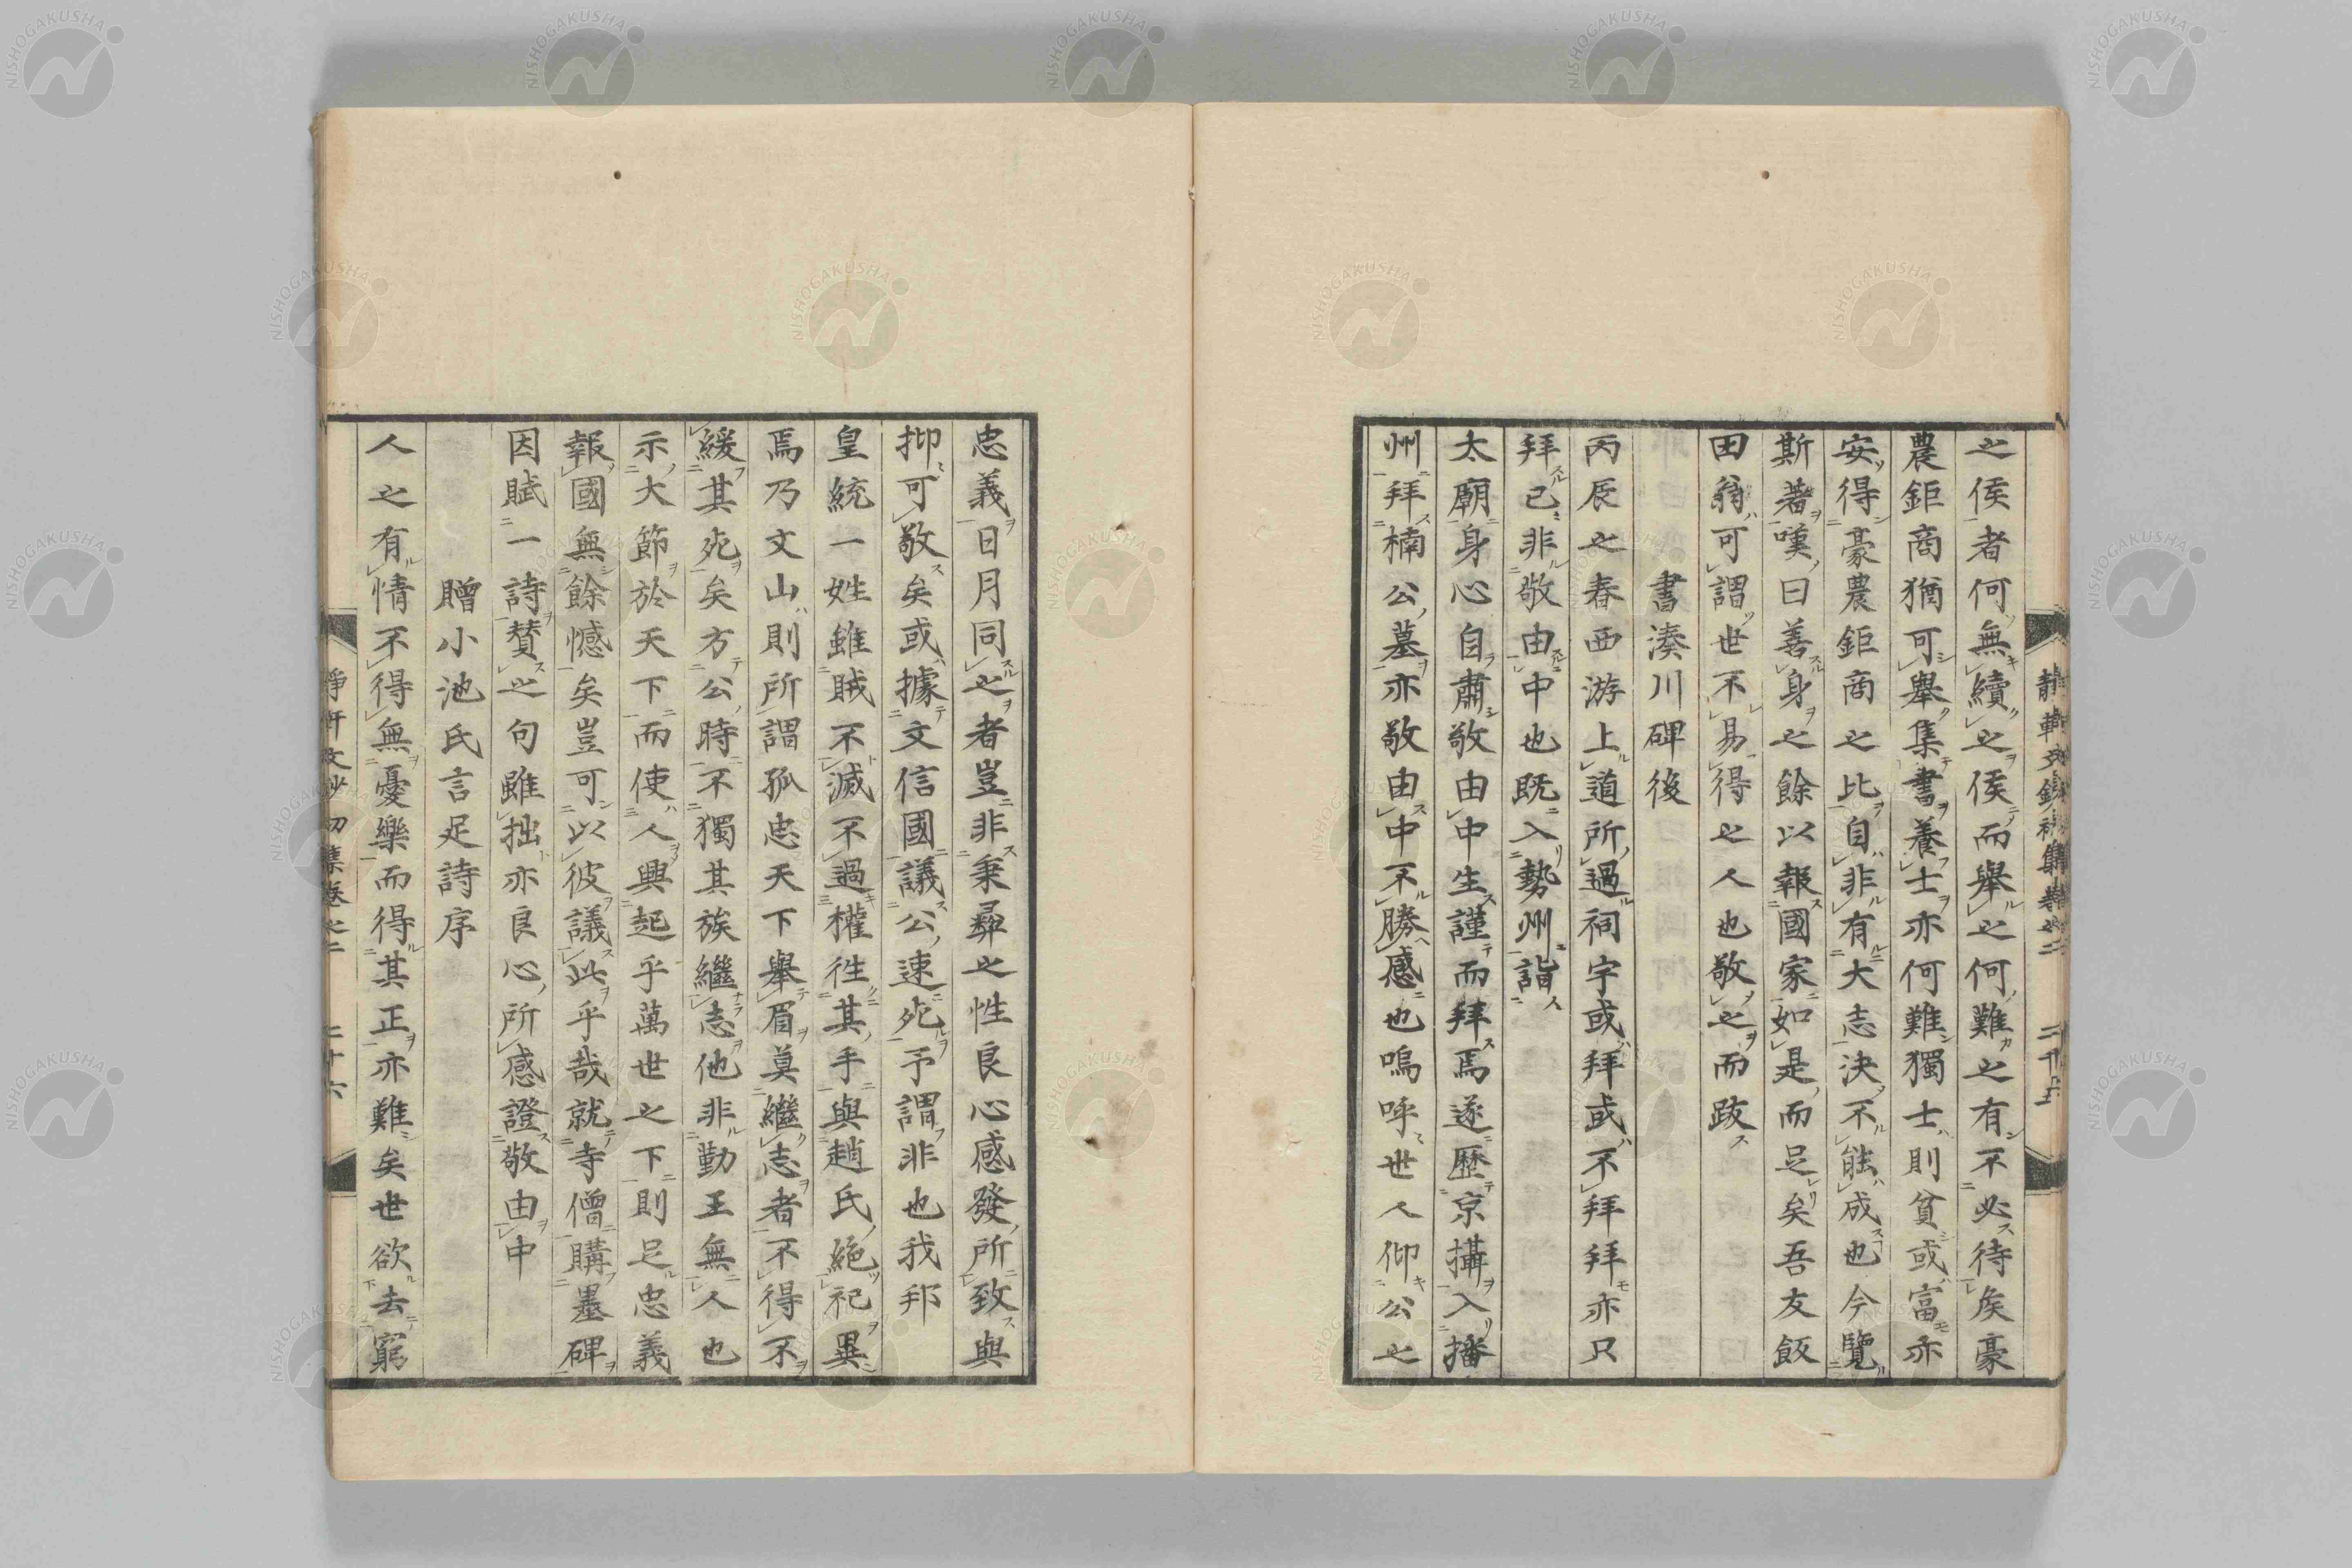 之俟者何無續之俟而舉之何難之有不必待矦豪
農鉅商猶可舉集書養士亦何難獨士則貧或富亦
安得豪農鉅商之比自非有大志決不能成也今覽
斯著嘆曰善身之餘以報國家如是而足矣吾友飯
田翁可謂世不易得之人也敬之而跋
書湊川碑後
丙辰之春西游上道所過祠宇或拜或不拜拜亦只
拜已非敬由中也既入勢州詣
太廟身心自肅敬由中生謹而拜焉遂歷京攝入播
州拜楠公墓亦敬由中不勝感也嗚呼世人仰公之
忠義日月同之者豈非秉彛之性良心感發所致與
抑可敬矣或據文信國議公速死予謂非也我邦
皇統一姓雖賊不滅不過權徃其手與趙氏絕祀異
焉乃文山則所謂孤忠天下舉眉莫繼志者不得不
緩其死矣方公時不獨其族繼志他非勤王無人也
示大節於天下而使人興起乎萬世之下則足忠義
報國無餘憾矣豈可以彼議此乎哉就寺僧購墨碑
因賦一詩賛之句雖拙亦良心所感證敬由中
贈小池氏言足詩序
人之有情不得無憂樂而得其正亦難矣世欲去窮
靜軒文鈔初集卷之二 二十五
靜軒文鈔初集卷之二 二十六
NISHOGAKUSHA